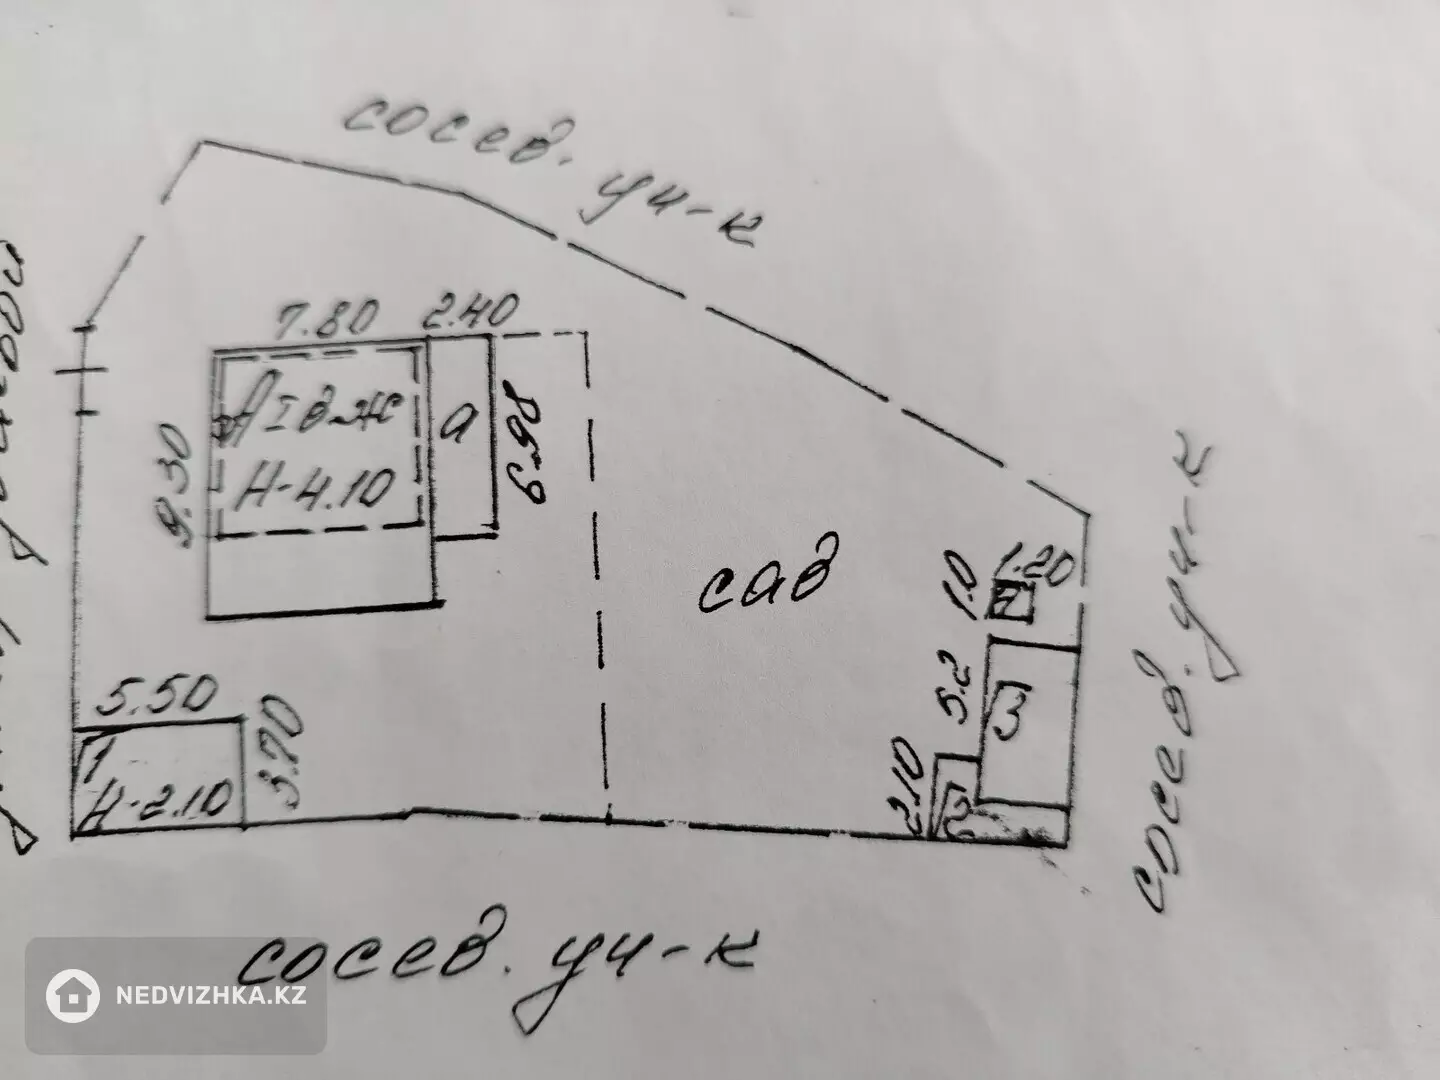 сосев. уч-к
7.80
2.40
А I в ж
Н-4.10
а
6.98
9.30
сад
1.0
1.20
5.2
3
2.10
2
5.50
1
Н-2.10
3.70
сосев. уч-к
сосев. уч-к
NEDVIZHKA.KZ